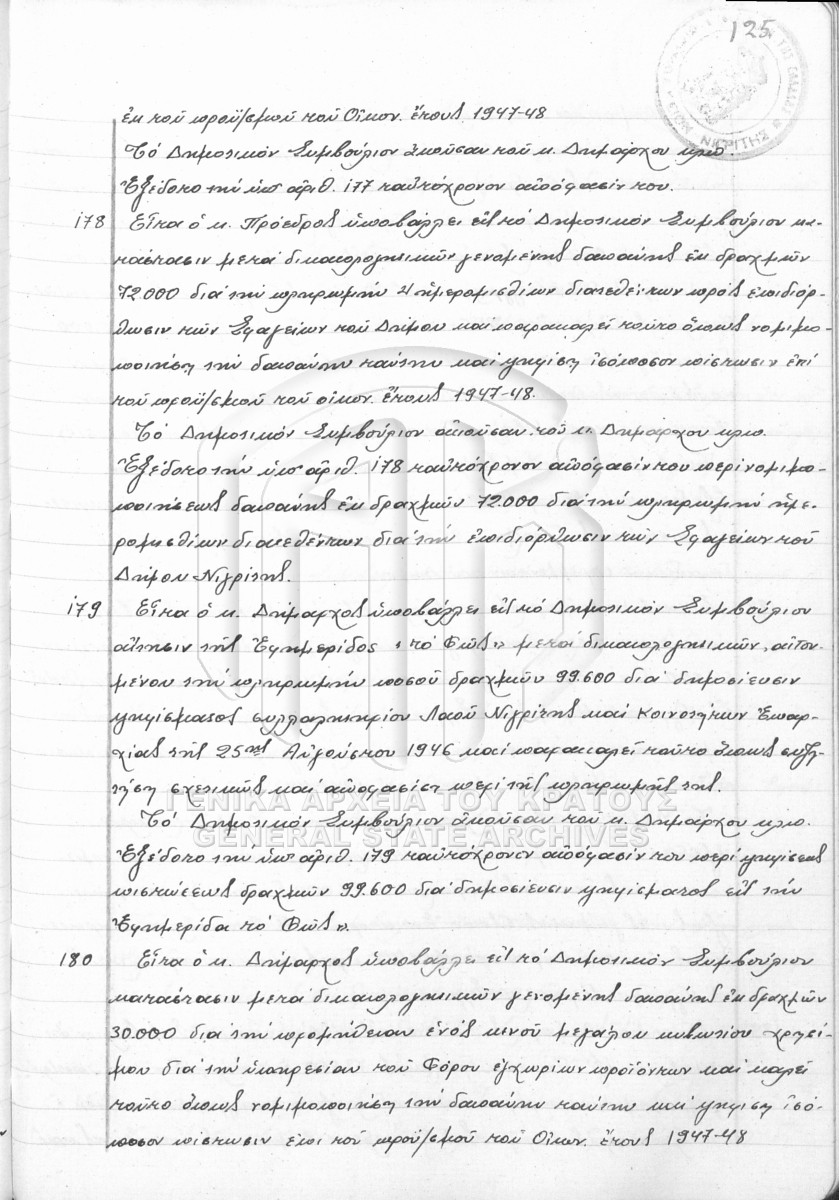 125
ΝΙΓΡΙΤΗΣ
ἐκ τοῦ προϋ/σμοῦ τοῦ Οἰκον. ἔτους 1947-48
Τό Δημοτικόν Συμβούλιον ἀκοῦσαν τοῦ κ. Δημάρχου κλπ.
Ἐξέδοτο τήν ὑπ' ἀριθ. 177 ταὐτόχρονον ἀπόφασίν του.
178 Εἶτα ὁ κ. Πρόεδρος ὑποβάλλει εἰς τό Δημοτικόν Συμβούλιον κα-
τάστασιν μετά δικαιολογητικῶν γενομένης δαπάνης ἐκ δραχμῶν
72.000 διά τήν πληρωμήν 4 ἡμερομισθίων διατεθέντων πρός ἐπιδιόρ-
θωσιν τῶν Σφαγείων τοῦ Δήμου καί παρακαλεῖ τοῦτο ὅπως νομιμο-
ποιήση τήν δαπάνην ταύτην καί ψηφίση ἰσόποσον πίστωσιν ἐπί
τοῦ προϋ/σμοῦ τοῦ οἰκον. ἔτους 1947-48.
Τό Δημοτικόν Συμβούλιον ἀκοῦσαν τοῦ κ. Δημάρχου κλπ.
Ἐξέδοτο τήν ὑπ' ἀριθ. 178 ταὐτόχρονον ἀπόφασίν του περί νομιμο-
ποιήσεως δαπάνης ἐκ δραχμῶν 72.000 διά τήν πληρωμήν ἡμε-
ρομισθίων διατεθέντων διά τήν ἐπιδιόρθωσιν τῶν Σφαγείων τοῦ
Δήμου Νιγρίτης.
179 Εἶτα ὁ κ. Δήμαρχος ὑποβάλλει εἰς τό Δημοτικόν Συμβούλιον
αἴτησιν τῆς Ἐφημερίδος «τό Φῶς» μετά δικαιολογητικῶν, αἰτου-
μένου τήν πληρωμήν ποσοῦ δραχμῶν 99.600 διά δημοσίευσιν
ψηφίσματος συλλαλητηρίου Λαοῦ Νιγρίτης καί Κοινοτήτων Ἐπαρ-
χίας τῆς 25ης Αὐγούστου 1946 καί παρακαλεῖ τοῦτο ὅπως συζη-
τήση σχετικῶς καί ἀποφασίση περί τῆς πληρωμῆς της.
ΓΕΝΙΚΑ ΑΡΧΕΙΑ ΤΟΥ ΚΡΑΤΟΥΣ
GENERAL STATE ARCHIVES
Τό Δημοτικόν Συμβούλιον ἀκοῦσαν τοῦ κ. Δημάρχου κλπ.
Ἐξέδοτο τήν ὑπ' ἀριθ. 179 ταὐτόχρονον ἀπόφασίν του περί ψηφίσεως
πιστώσεως δραχμῶν 99.600 διά δημοσίευσιν ψηφίσματος εἰς τήν
Ἐφημερίδα τό Φῶς».
180 Εἶτα ὁ κ. Δήμαρχος ὑποβάλλει εἰς τό Δημοτικόν Συμβούλιον
κατάστασιν μετά δικαιολογητικῶν γενομένης δαπάνης ἐκ δραχμῶν
30.000 διά τήν προμήθειαν ἑνός κενοῦ μεγάλου κιβωτίου χρησί-
μου διά τήν ὑπηρεσίαν τοῦ Φόρου ἐγχωρίων προϊόντων καί καλεῖ
τοῦτο ὅπως νομιμοποιήση τήν δαπάνην ταύτην καί ψηφίση ἰσό-
ποσον πίστωσιν ἐπί τοῦ προϋ/σμοῦ τοῦ Οἰκον. ἔτους 1947-48